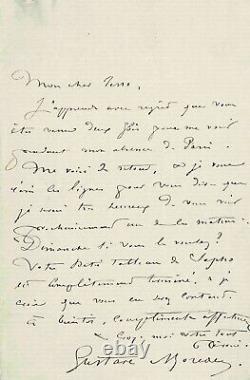 Mon cher
J'apprends avec regret que vous
êtes venu deux fois pour me voir
pendant mon absence de Paris
Me voici de retour, et je vous
écris ces lignes pour vous dire que
je serai très heureux de vous voir
prochainement un de ces matins.
Dimanche si vous le voulez?
Votre Petit tableau de Sapho
est complètement terminé, & je
crois que vous en serez content.
à bientôt, Compliments affectueux
votre tout
Gustave Moreau.